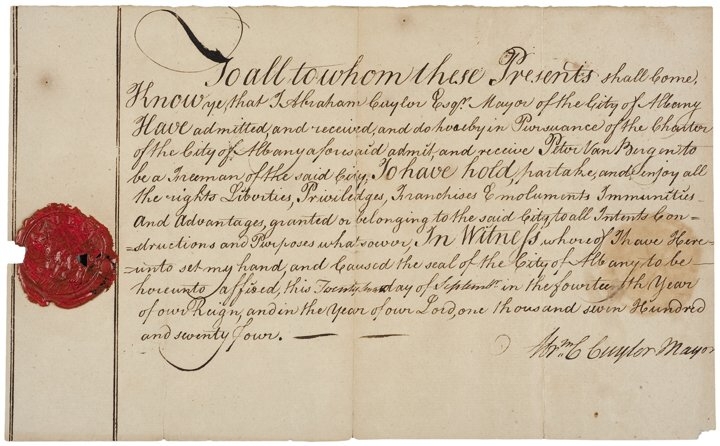 To all to whom these Presents shall Come,
Know ye, that I Abraham Cuyler Esqr. Mayor of the City of Albany
Have admitted, and received, and do hereby in Pursuance of the Charter
of the City of Albany aforesaid admit, and receive Peter Van Bergen to
be a Freeman of the said City, To have hold, partake, and enjoy all
the rights Liberties, Priviledges, Franchises Emoluments Immunities
And Advantages, granted or belonging to the said City, to all Intents Con-
=structions and Purposes whatsoever, In Witness whereof I have Here-
=unto set my hand, and Caused the seal of the City of Albany to be
hereunto affixed, this day of Septemr. in the fourteenth Year
of our Reign, and in the Year of our Lord, one thousand seven Hundred
and seventy four.
Abrm. C Cuyler Mayor